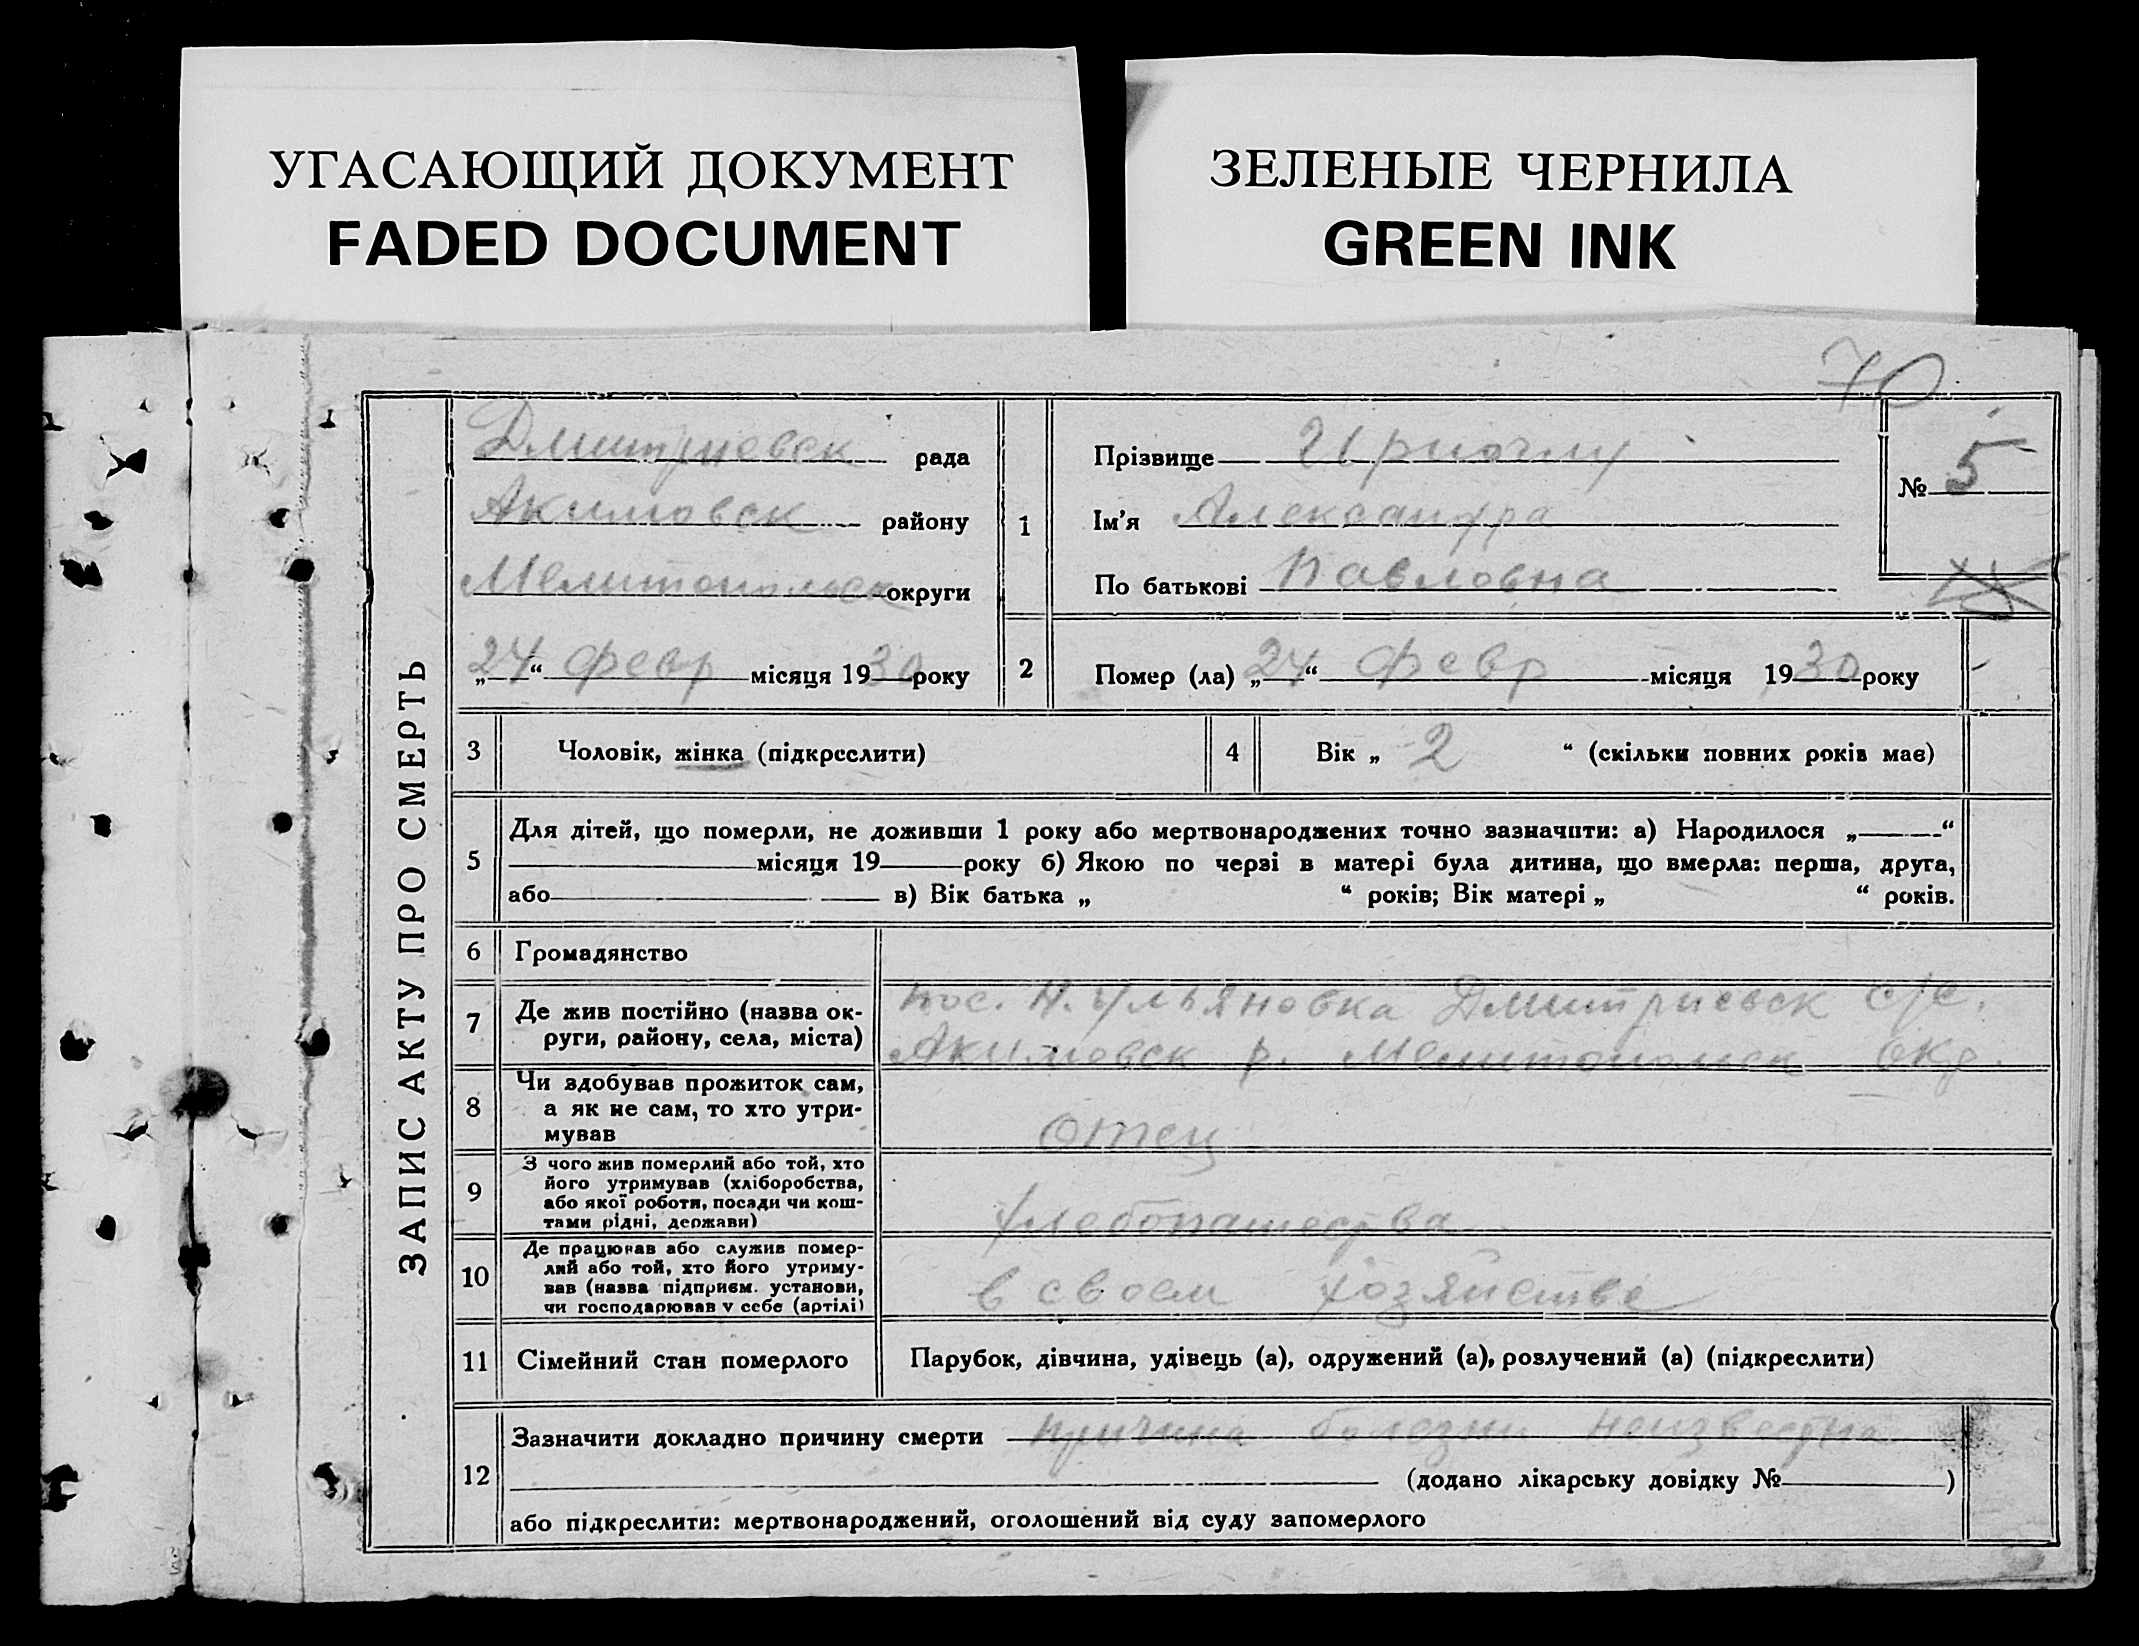 УГАСАЮЩИЙ ДОКУМЕНТ
FADED DOCUMENT
ЗЕЛЕНЫЕ ЧЕРНИЛА
GREEN INK
70
ЗАПИС АКТУ ПРО СМЕРТЬ
Дмитриевск рада
Акимовск району
Мелитопольск округи
„24“ февр місяця 1930 року
1
Прізвище
Ім'я Александра
По батькові Павловна
№ 5
2 Помер (ла) „24“ февр місяця 1930 року
3 Чоловік, жінка (підкреслити)
4 Вік „ 2 “ (скільки повних років має)
5
Для дітей, що померли, не доживши 1 року або мертвонароджених точно зазначити: а) Народилося „ “
місяця 19 року б) Якою по черзі в матері була дитина, що вмерла: перша, друга,
або в) Вік батька „ “ років; Вік матері „ “ років.
6 Громадянство
7 Де жив постійно (назва ок-
руги, району, села, міста)
пос. Н. Ульяновка Дмитриевск с/с.
Акимовск р. Мелитопольск окр.
8 Чи здобував прожиток сам,
а як не сам, то хто утри-
мував
отец
9 З чого жив померлий або той, хто
його утримував (хліборобства,
або якої роботи, посади чи кош-
тами рідні, держави)
хлебопашества
10 Де працював або служив помер-
лий або той, хто його утриму-
вав (назва підприєм. установи,
чи господарював у себе (артілі)
в своем хозяйстве
11 Сімейний стан померлого
Парубок, дівчина, удівець (а), одружений (а), розлучений (а) (підкреслити)
12 Зазначити докладно причину смерти причина болезни неизвестна
(додано лікарську довідку № )
або підкреслити: мертвонароджений, оголошений від суду запомерлого